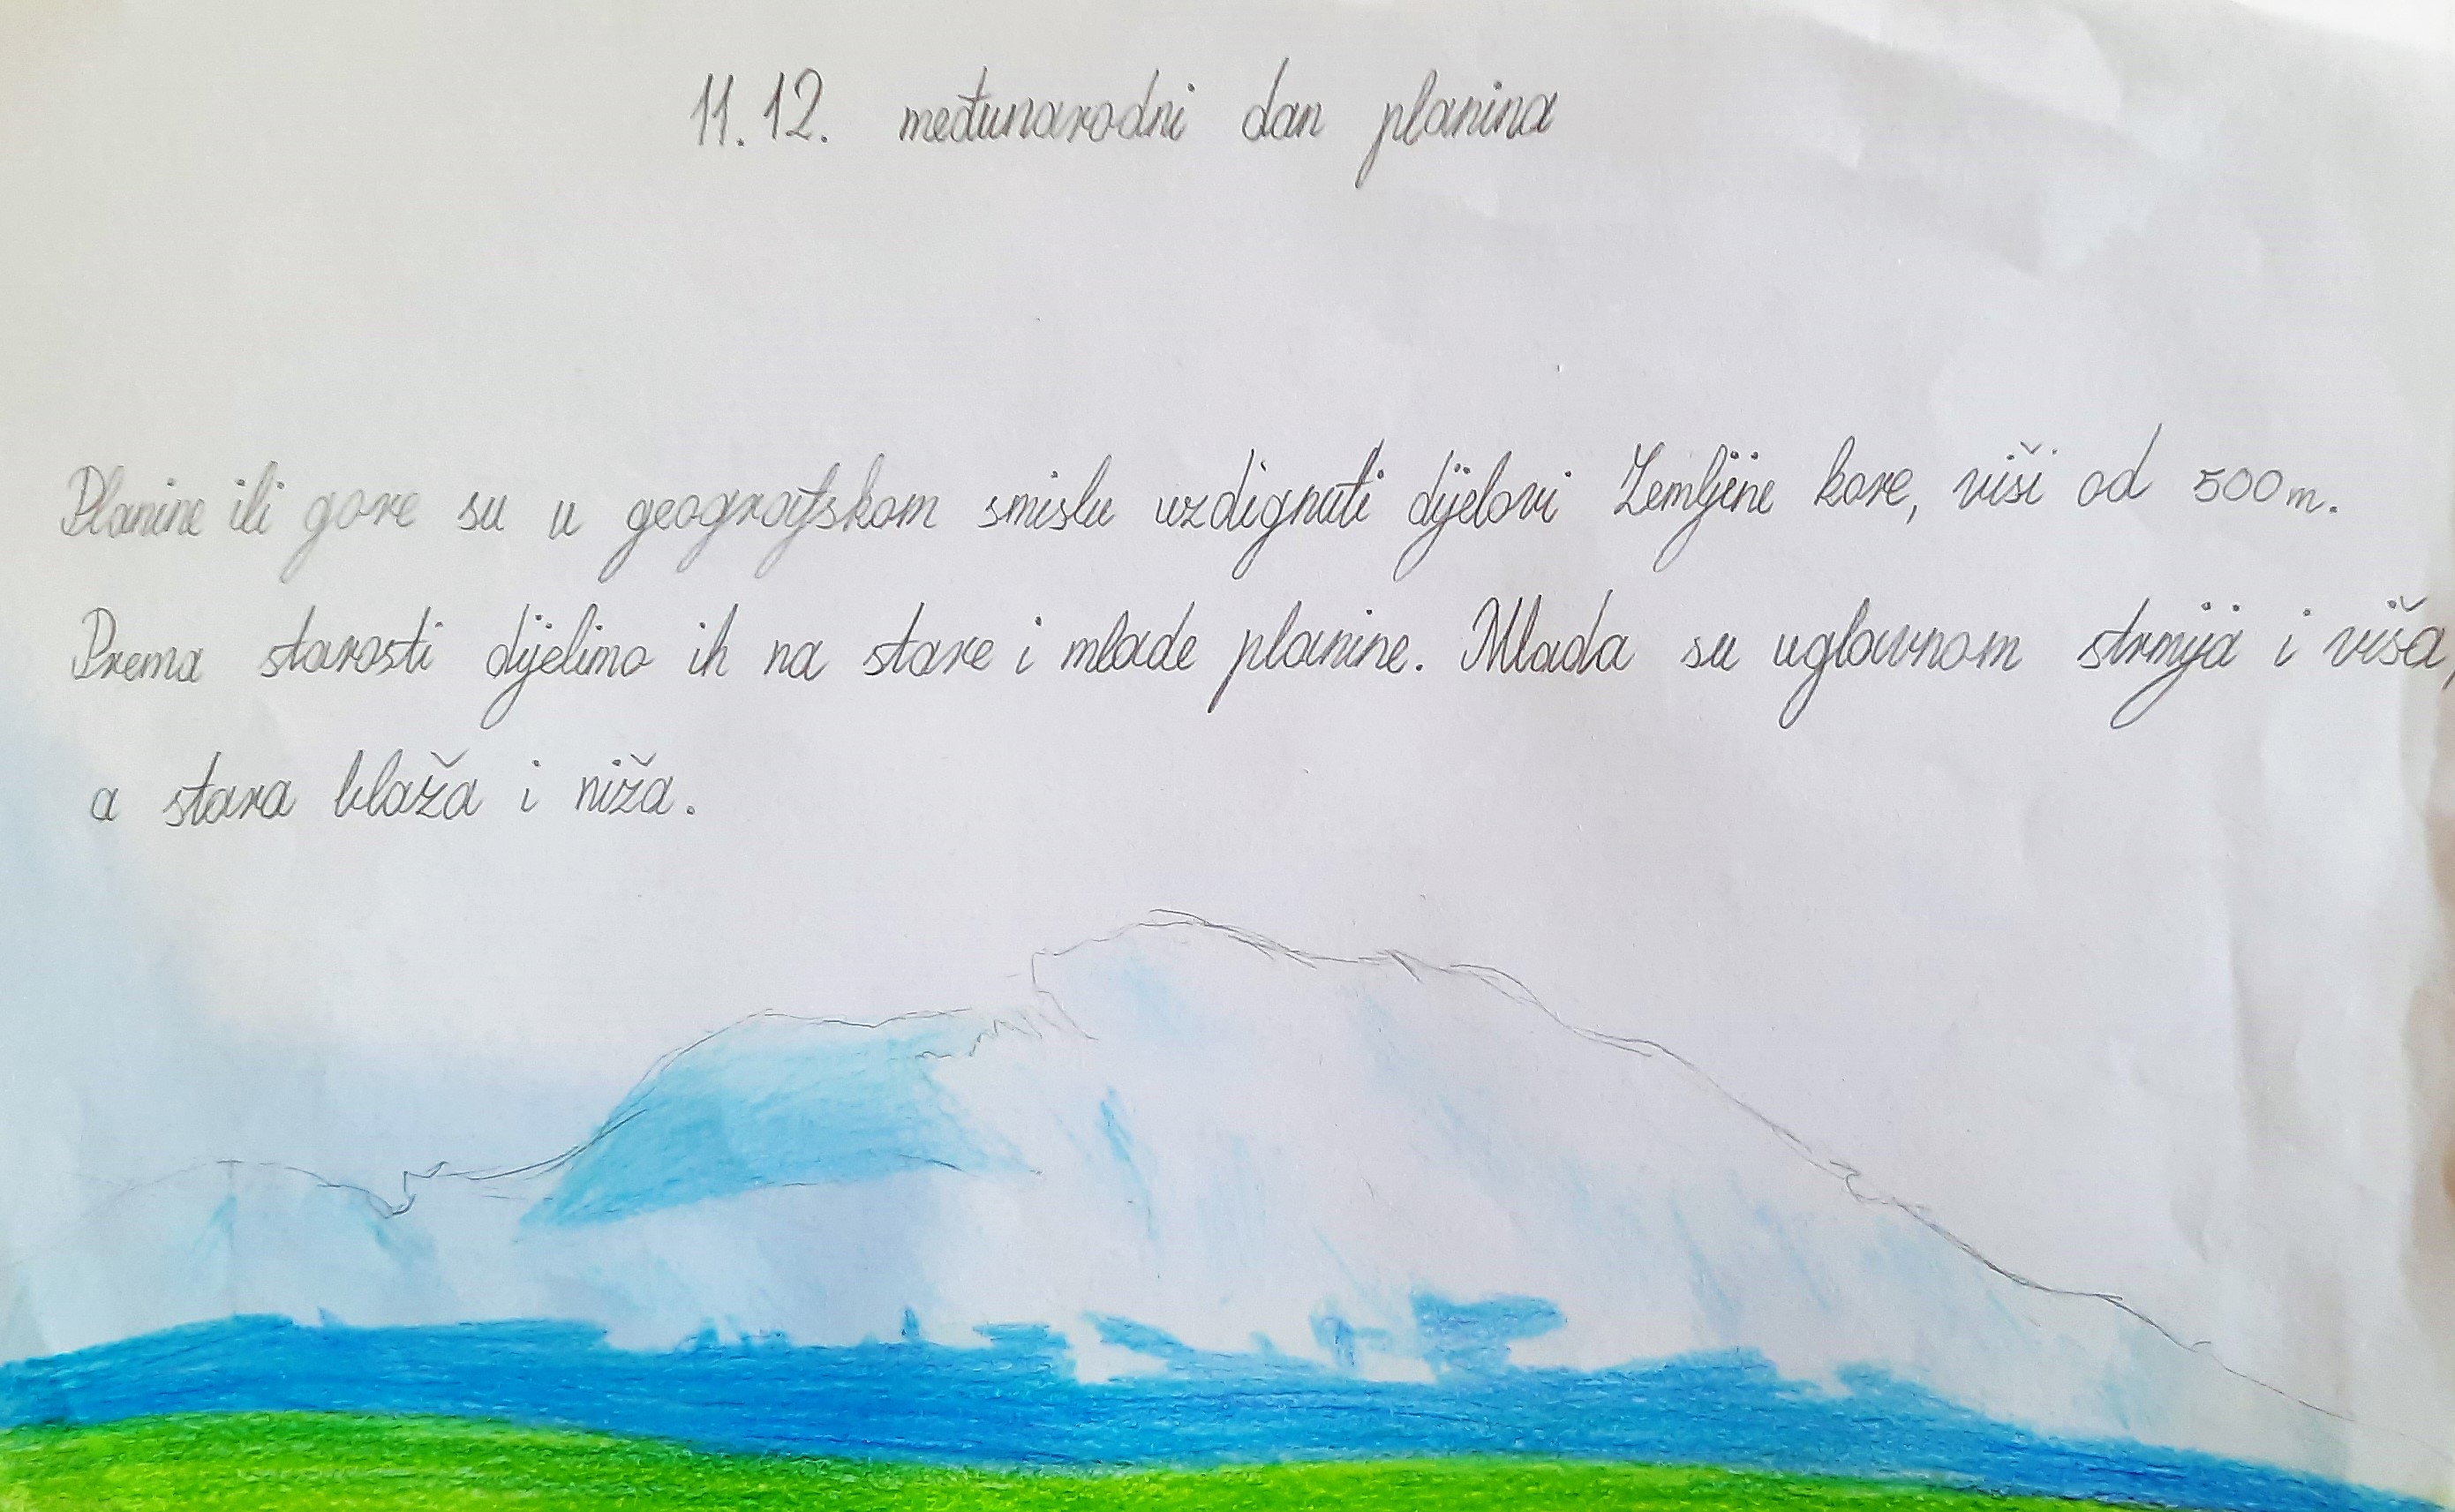 11.12. međunarodni dan planina
Planine ili gore su u geografskom smislu uzdignuti dijelovi Zemljine kore, viši od 500m.
Prema starosti dijelimo ih na stare i mlade planine. Mlada su uglavnom strmija i viša,
a stara blaža i niža.